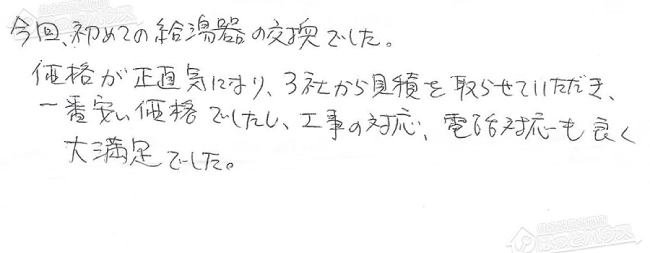 今回、初めての給湯器の交換でした。
価格が正直気になり、3社から見積を取らせていただき、
一番安い価格でしたし、工事の対応、電話対応も良く
大満足でした。